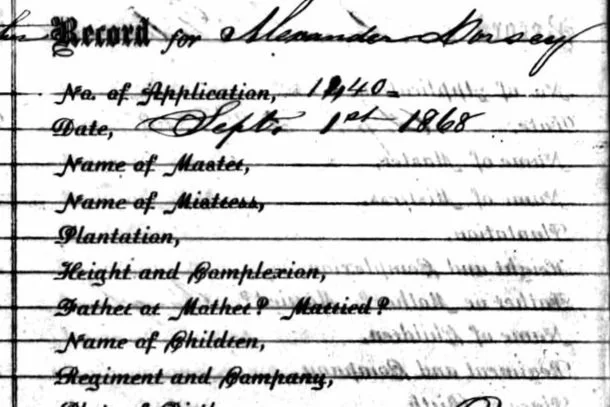 Record for Alexander Dorsey
No. of Application, 1440
Date, Sept. 1st 1868
Name of Master,
Name of Mistress,
Plantation,
Height and Complexion,
Father or Mother? Married?
Name of Children,
Regiment and Company,